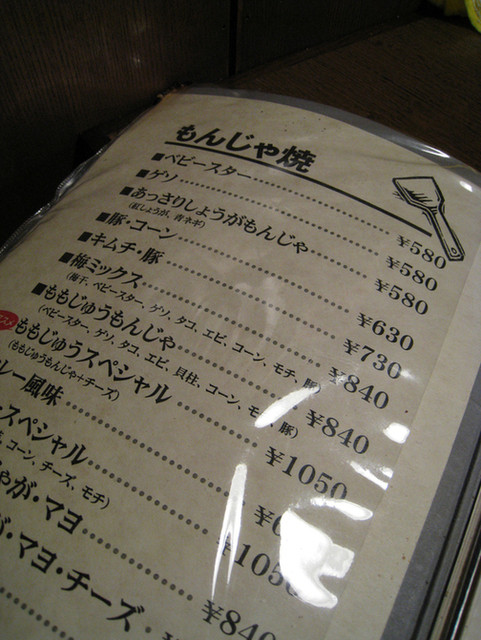 もんじゃ焼
■ベビースター ¥580
■ゲソ ¥580
■あっさりしょうがもんじゃ ¥580
(紅しょうが、青ネギ)
■豚・コーン ¥630
■キムチ・豚 ¥730
■梅ミックス ¥840
(梅干、ベビースター、ゲソ、タコ、エビ、コーン、モチ、豚)
■ももじゅうもんじゃ ¥840
(ベビースター、ゲソ、タコ、エビ、貝柱、コーン、モチ、豚)
ももじゅうスペシャル ¥1050
(ももじゅうもんじゃ+チーズ)
レー風味
スペシャル ¥1050
コーン、チーズ、モチ)
じゃが・マヨ ¥840
・マヨ・チーズ